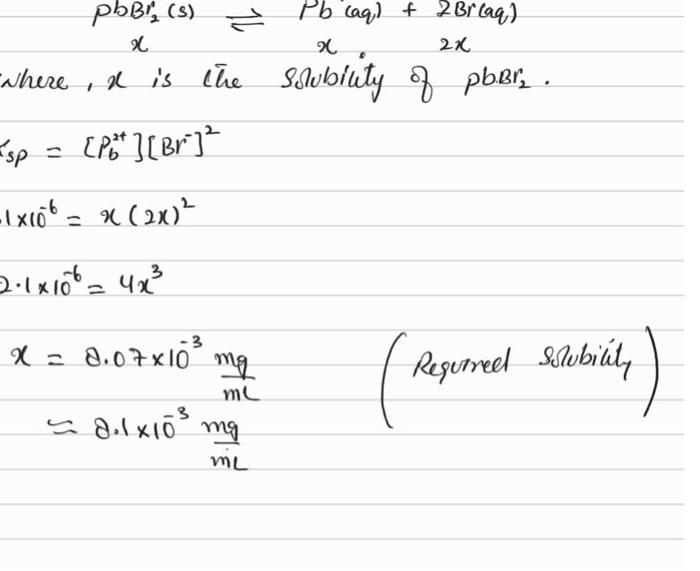 pbBr₂ (s) ⇌ Pb (aq) + 2Br (aq)
x x 2x
where, x is the solubility of pbBr₂.
Ksp = [Pb²⁺][Br⁻]²
.1×10⁻⁶ = x(2x)²
2.1×10⁻⁶ = 4x³
x = 8.07×10⁻³ mg/mL (Required solubility)
≈ 8.1×10⁻³ mg/mL